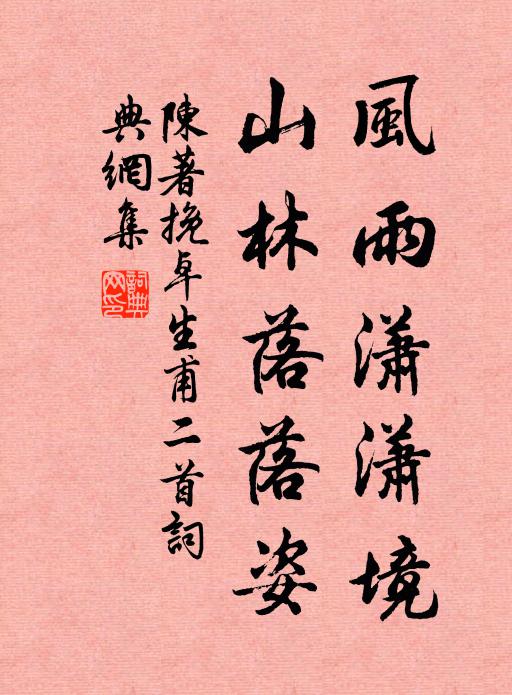 風雨瀟瀟境
山林落落姿
陳著挽卓生甫二首詞
典網集
詞典網印